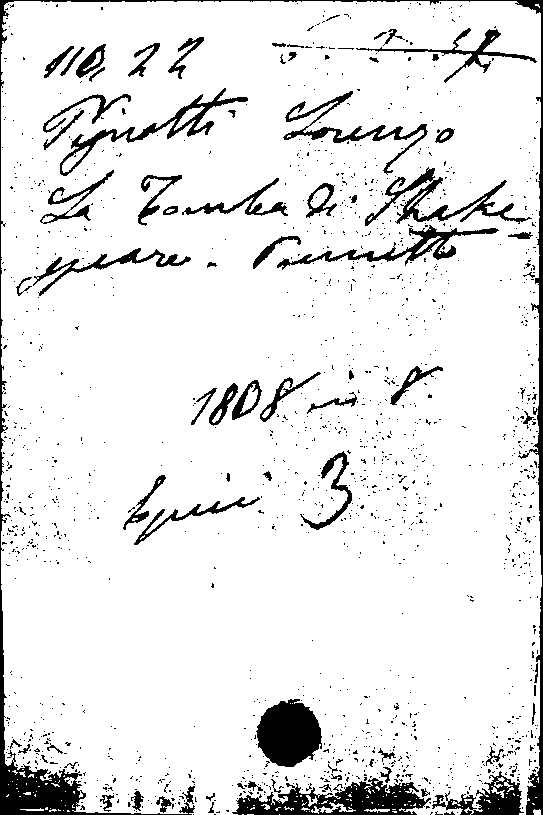 110, 22
Pignotti Lorenzo
La Tomba di Shake-
speare. Poemetto
1808 in 8.
3